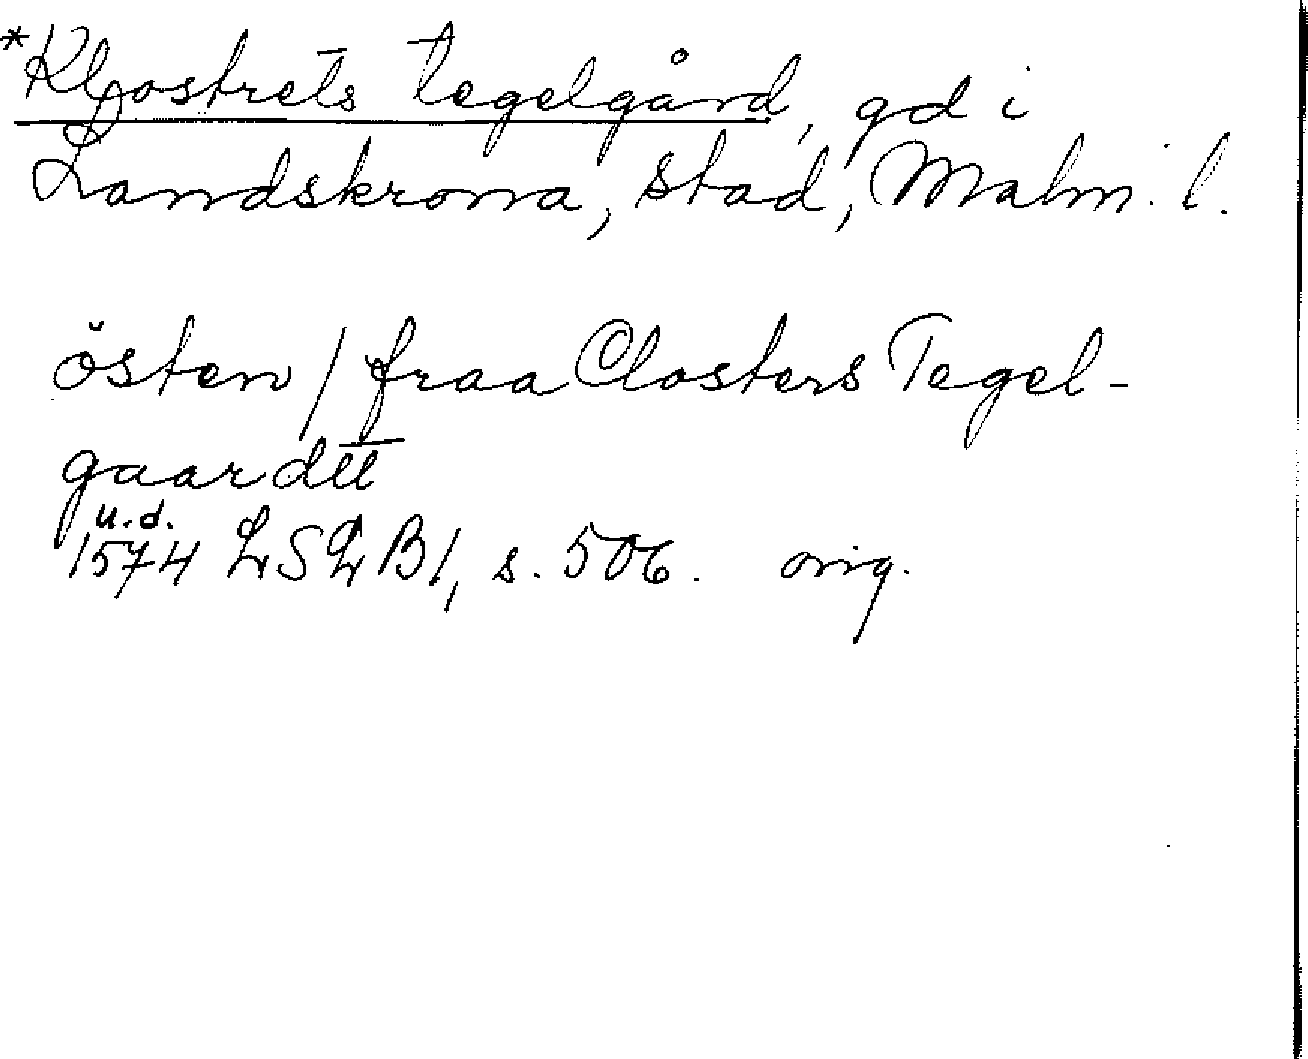 *Klostrets tegelgård, gd i
Landskrona, stad, Malm. l.
östen / fraa Closters Tegel-
gaardtt
u.d.
1574 LSLB1, s. 506. orig.